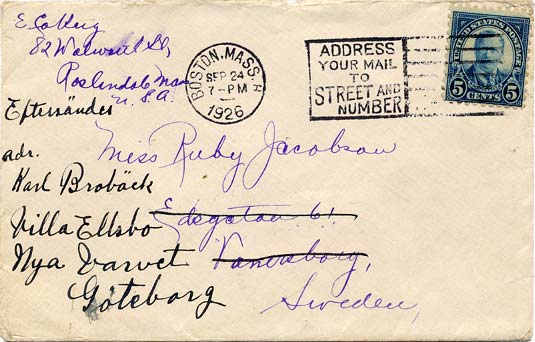 E. Coxberg
82 Walworth St,
Roslindale Mass
U. S. A.
BOSTON, MASS. A
SEP 24
7-PM
1926
ADDRESS
YOUR MAIL
TO
STREET AND
NUMBER
UNITED STATES POSTAGE
5 CENTS 5
Eftersändes
adr.
Karl Brobäck
Villa Ellsbo
Nya Varvet
Göteborg
Miss Ruby Jacobson
Edsgatan 61
Vanersborg,
Sweden,